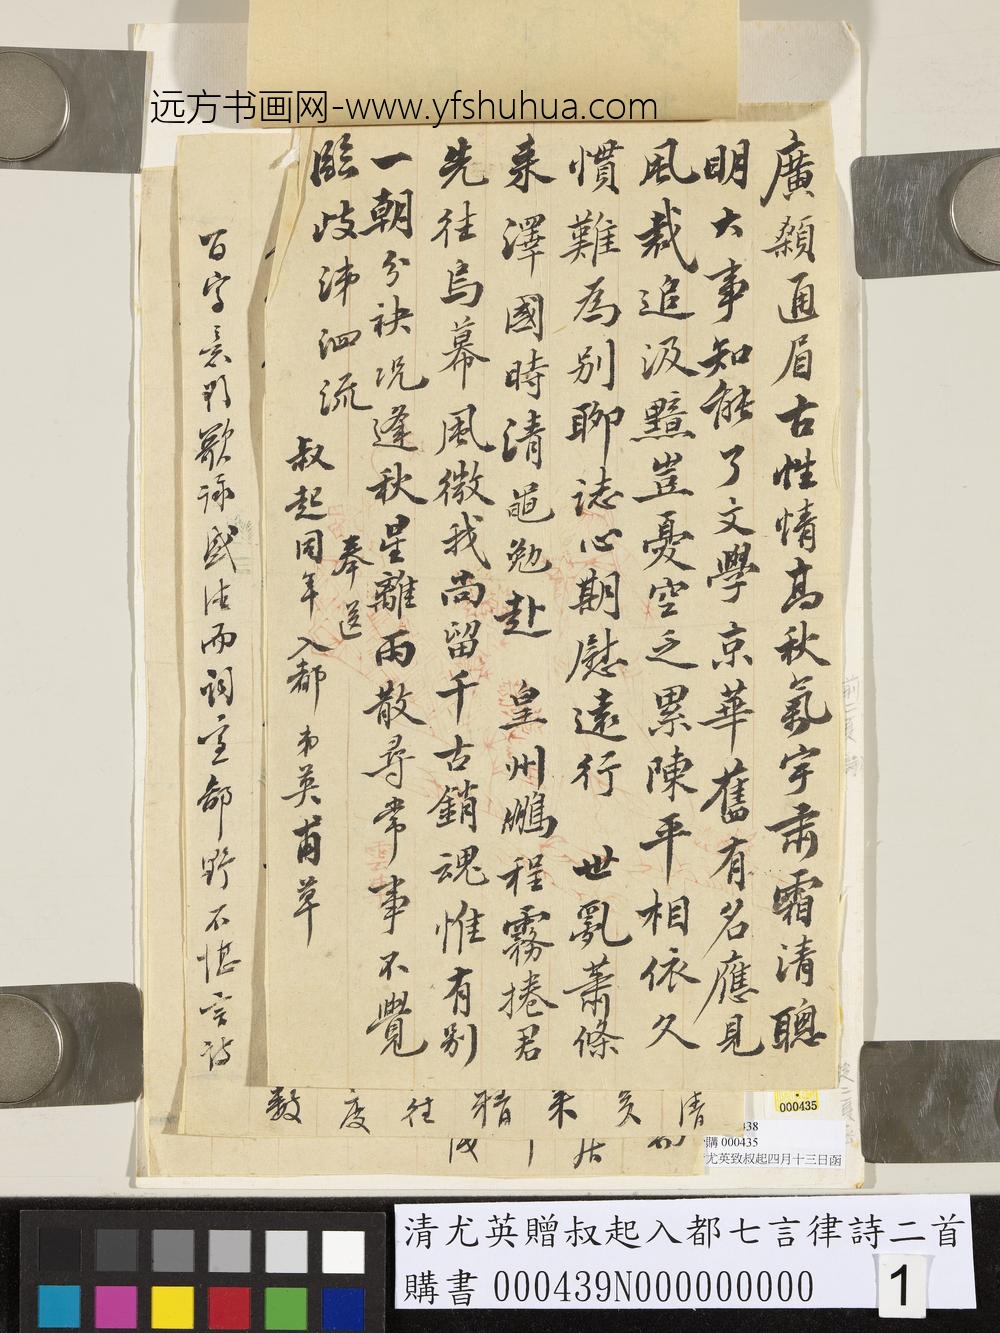 远方书画网-www.yfshuhua.com
廣顙通眉古性情高秋氣宇肅霜清聰
明大事知能了文學京華舊有名應見
風裁追汲黯豈憂空乏累陳平相依久
慣難為別聊誌心期慰遠行 世亂蕭條
來澤國時清黽勉赴 皇州鵬程霧捲君
先往烏幕風微我尚留千古銷魂惟有別
一朝分袂況逢秋星離雨散尋常事不覺
臨歧涕泗流
奉送
叔起同年入都 弟英甫草
百字 歌詠盛 而詞 鄙野不堪言詩
清 米精往度数
000435
438
購 000435
尤英致叔起四月十三日函
清尤英贈叔起入都七言律詩二首
購書 000439N000000000
1